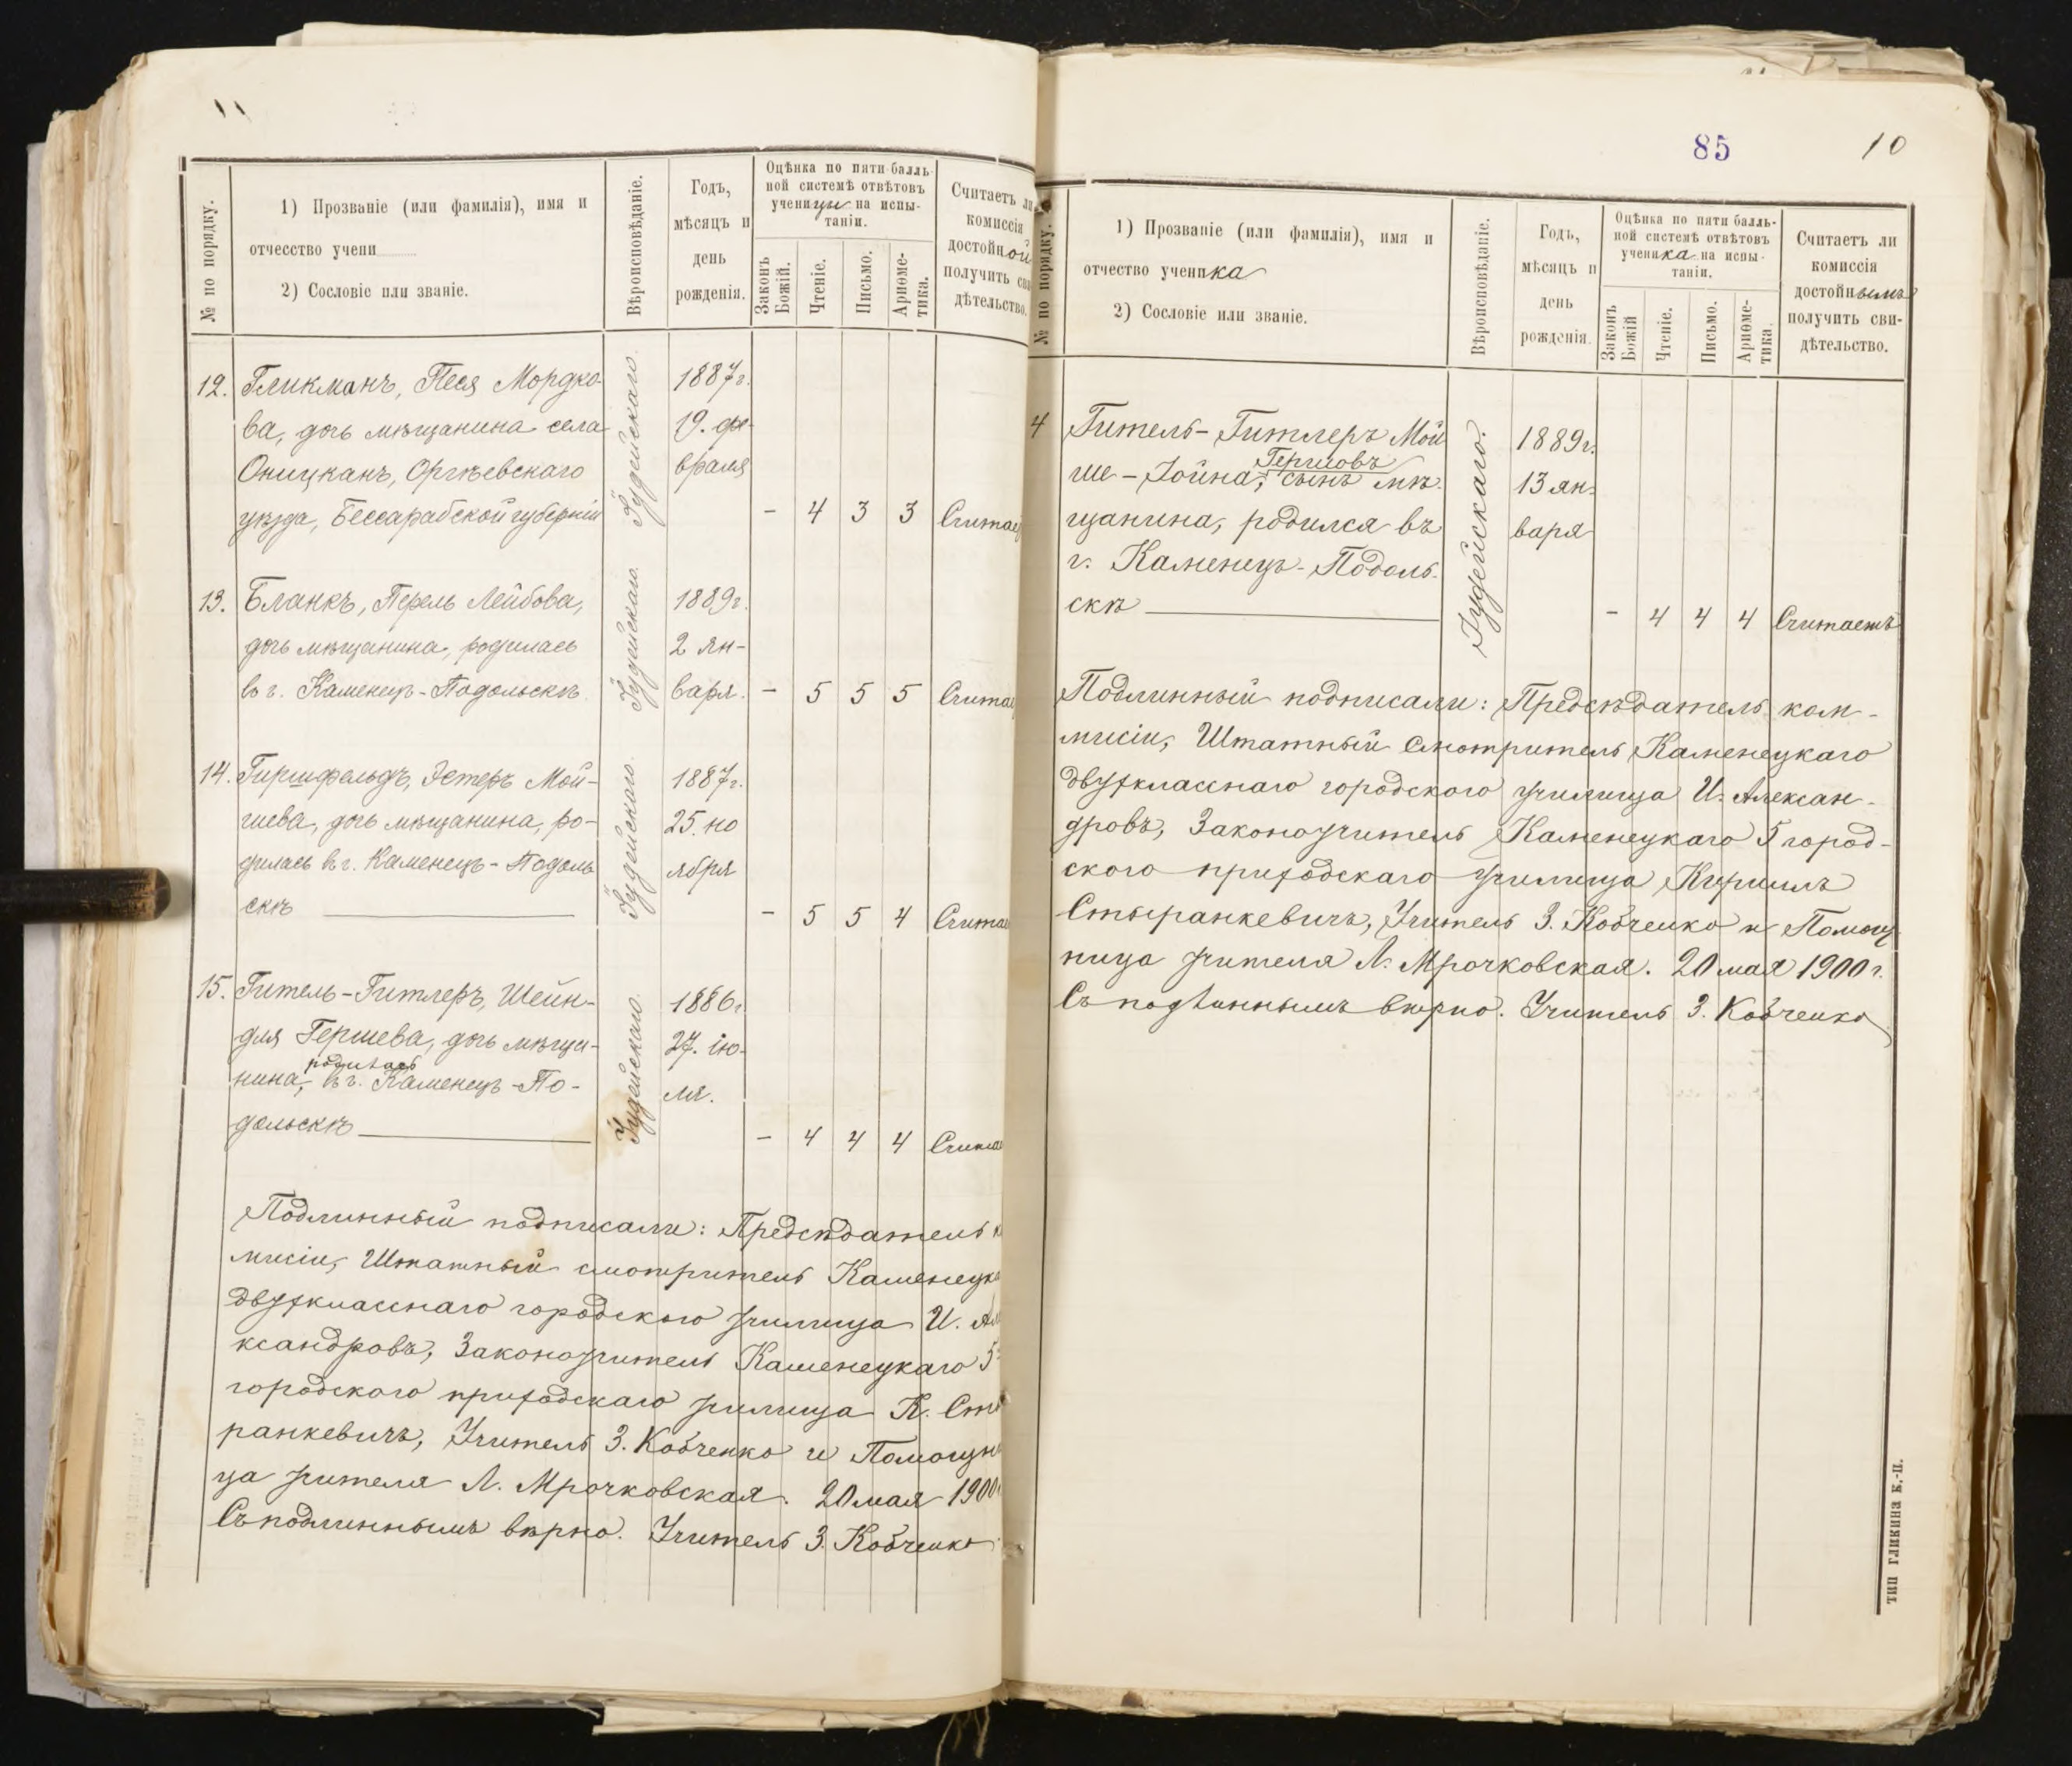 № по порядку.
1) Прозваніе (или фамилія), имя и
отчесство учени
2) Сословіе или званіе.
Вѣроисповѣданіе.
Годъ,
мѣсяцъ и
день
рожденія.
Оцѣнка по пяти балль-
ной системѣ отвѣтовъ
ученицы на испы-
таніи.
Законъ
Божій.
Чтеніе.
Письмо.
Ариѳме-
тика.
Считаетъ ли
комиссія
достойной
получить сви
дѣтельство.
12. Гликманъ, Песя Мордко-
ва, дочь мѣщанина села
Оницканъ, Оргѣевскаго
уѣзда, Бессарабской губерніи
Іудейскаго.
1887г.
19. фе-
враля
- 4 3 3 Считае
13. Бланкъ, Перель Лейбова,
дочь мѣщанина, родилась
въ г. Каменец-Подольскѣ.
Іудейскаго.
1889г.
2 Ян-
варя.
- 5 5 5 Считае
14. Гиршфельдъ, Эстеръ Мой-
шева, дочь мѣщанина, ро-
дилась въ г. Каменецъ-Подоль
скѣ
Іудейскаго.
1887г.
25. но
ября
- 5 5 4 Считае
15. Гитель-Гитлеръ, Шейн-
для Гершева, дочь мѣща-
родилась
нина, въ г. Каменецъ-По-
дольскѣ
Іудейскаго.
1886г.
27. ію-
ля.
- 4 4 4 Считае
Подлинный подписали: Предсѣдатель к
мисіи, Штатный смотритель Каменецка
двухкласснаго городского училища И. Але
ксандровъ, Законоучитель Каменецкаго 5
городского приходскаго училища К. Сты
ранкевичъ, Учитель З. Кобченко и Помощни
ца учителя Л. Мрочковская. 20 мая 1900
Съ подлиннымъ вѣрно. Учитель З. Кобченко
85
10
№ по порядку.
1) Прозваніе (или фамилія), имя и
отчество ученика
2) Сословіе или званіе.
Вѣроисповѣданіе.
Годъ,
мѣсяцъ и
день
рожденія.
Оцѣнка по пяти балль-
ной системѣ отвѣтовъ
ученика на испы-
таніи.
Законъ
Божій
Чтеніе.
Письмо.
Ариѳме-
тика.
Считаетъ ли
комиссія
достойнымъ
получить сви-
дѣтельство.
4 Гитель-Гитлеръ Мой
Гершовъ
ше-Іойна, сынъ мѣ-
щанина, родился въ
г. Каменецъ-Подоль-
скѣ
Іудейскаго.
1889г.
13 ян-
варя
- 4 4 4 Считаетъ
Подлинный подписали: Предсѣдатель ком-
мисіи, Штатный Смотритель Каменецкаго
двухкласснаго городского училища И. Алексан-
дровъ, Законоучитель Каменецкаго 5 город-
ского приходскаго училища Кириллъ
Стыранкевичъ, Учитель З. Кобченко и Помощ
ница учителя Л. Мрочковская. 20 мая 1900 г.
Съ подлиннымъ вѣрно. Учитель З. Кобченко
ТИП ГЛИКИНА К.-П.